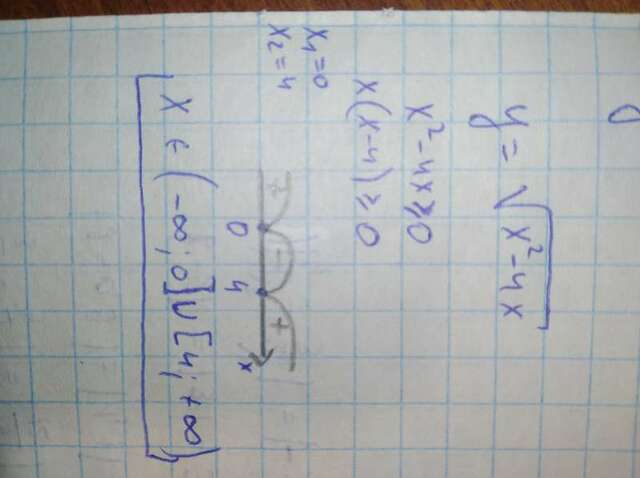 y = √x²-4x
x²-4x≥0
x(x-4)≥0
x₁=0
x₂=4
+ - +
0 4 x
x ∈ (-∞; 0]∪[4; +∞)